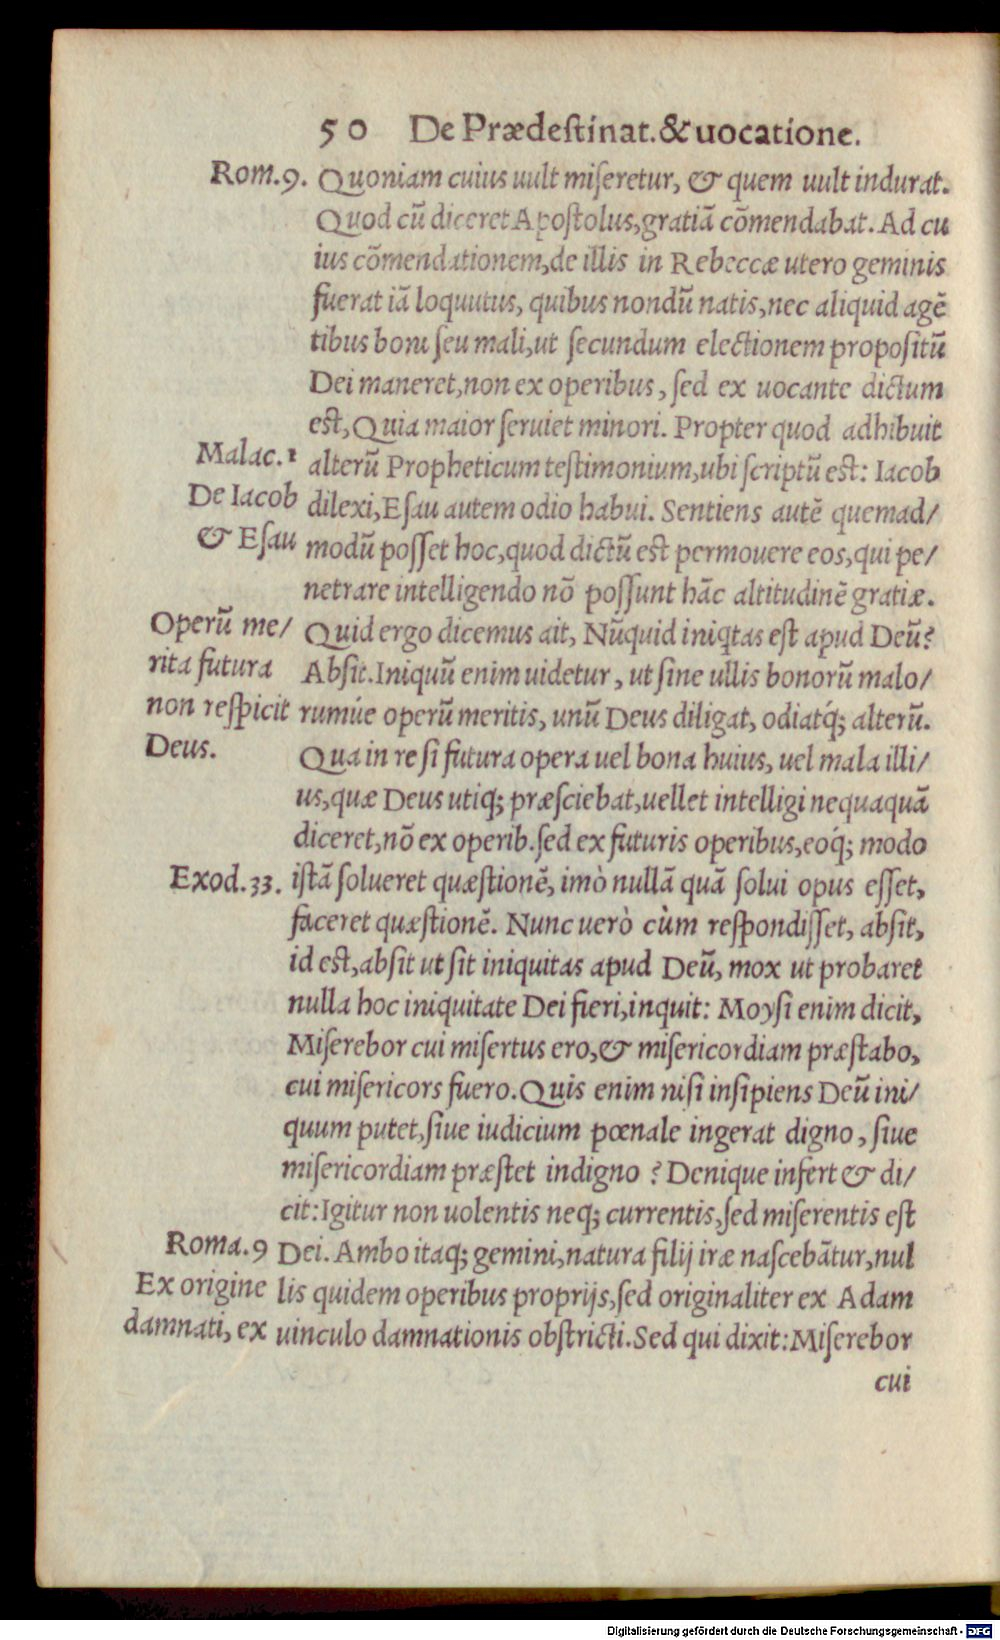 50 De Prædestinat. & uocatione.
Rom.9. Quoniam cuius uult miseretur, & quem uult indurat.
Quod cū diceret Apostolus, gratiā cōmendabat. Ad cu
ius cōmendationem, de illis in Rebeccæ utero geminis
fuerat iā loquutus, quibus nondū natis, nec aliquid agē
tibus boni seu mali, ut secundum electionem propositū
Dei maneret, non ex operibus, sed ex uocante dictum
est, Quia maior seruiet minori. Propter quod adhibuit
Malac.1 alterū Propheticum testimonium, ubi scriptū est: Iacob
De Iacob dilexi, Esau autem odio habui. Sentiens autē quemad/
& Esau modū posset hoc, quod dictū est permouere eos, qui pe/
netrare intelligendo nō possunt hāc altitudinē gratiæ.
Operū me/ Quid ergo dicemus ait, Nūquid iniqtas est apud Deū?
rita futura Absit. Iniquū enim uidetur, ut sine ullis bonorū malo/
non respicit rumúe operū meritis, unū Deus diligat, odiatq́; alterū.
Deus. Qua in re si futura opera uel bona huius, uel mala illi/
us, quæ Deus utiq; præsciebat, uellet intelligi nequaquā
diceret, nō ex operib. sed ex futuris operibus, eoq́; modo
Exod.33. istā solueret quæstionē, imò nullā quā solui opus esset,
faceret quæstionē. Nunc uerò cùm respondisset, absit,
id est, absit ut sit iniquitas apud Deū, mox ut probaret
nulla hoc iniquitate Dei fieri, inquit: Moysi enim dicit,
Miserebor cui misertus ero, & misericordiam præstabo,
cui misericors fuero. Quis enim nisi insipiens Deū ini/
quum putet, siue iudicium pœnale ingerat digno, siue
misericordiam præstet indigno? Denique infert & di/
cit: Igitur non uolentis neq; currentis, sed miserentis est
Roma.9 Dei. Ambo itaq; gemini, natura filij iræ nascebātur, nul
Ex origine lis quidem operibus proprijs, sed originaliter ex Adam
damnati, ex uinculo damnationis obstricti. Sed qui dixit: Miserebor
cui
Digitalisierung gefördert durch die Deutsche Forschungsgemeinschaft - DFG